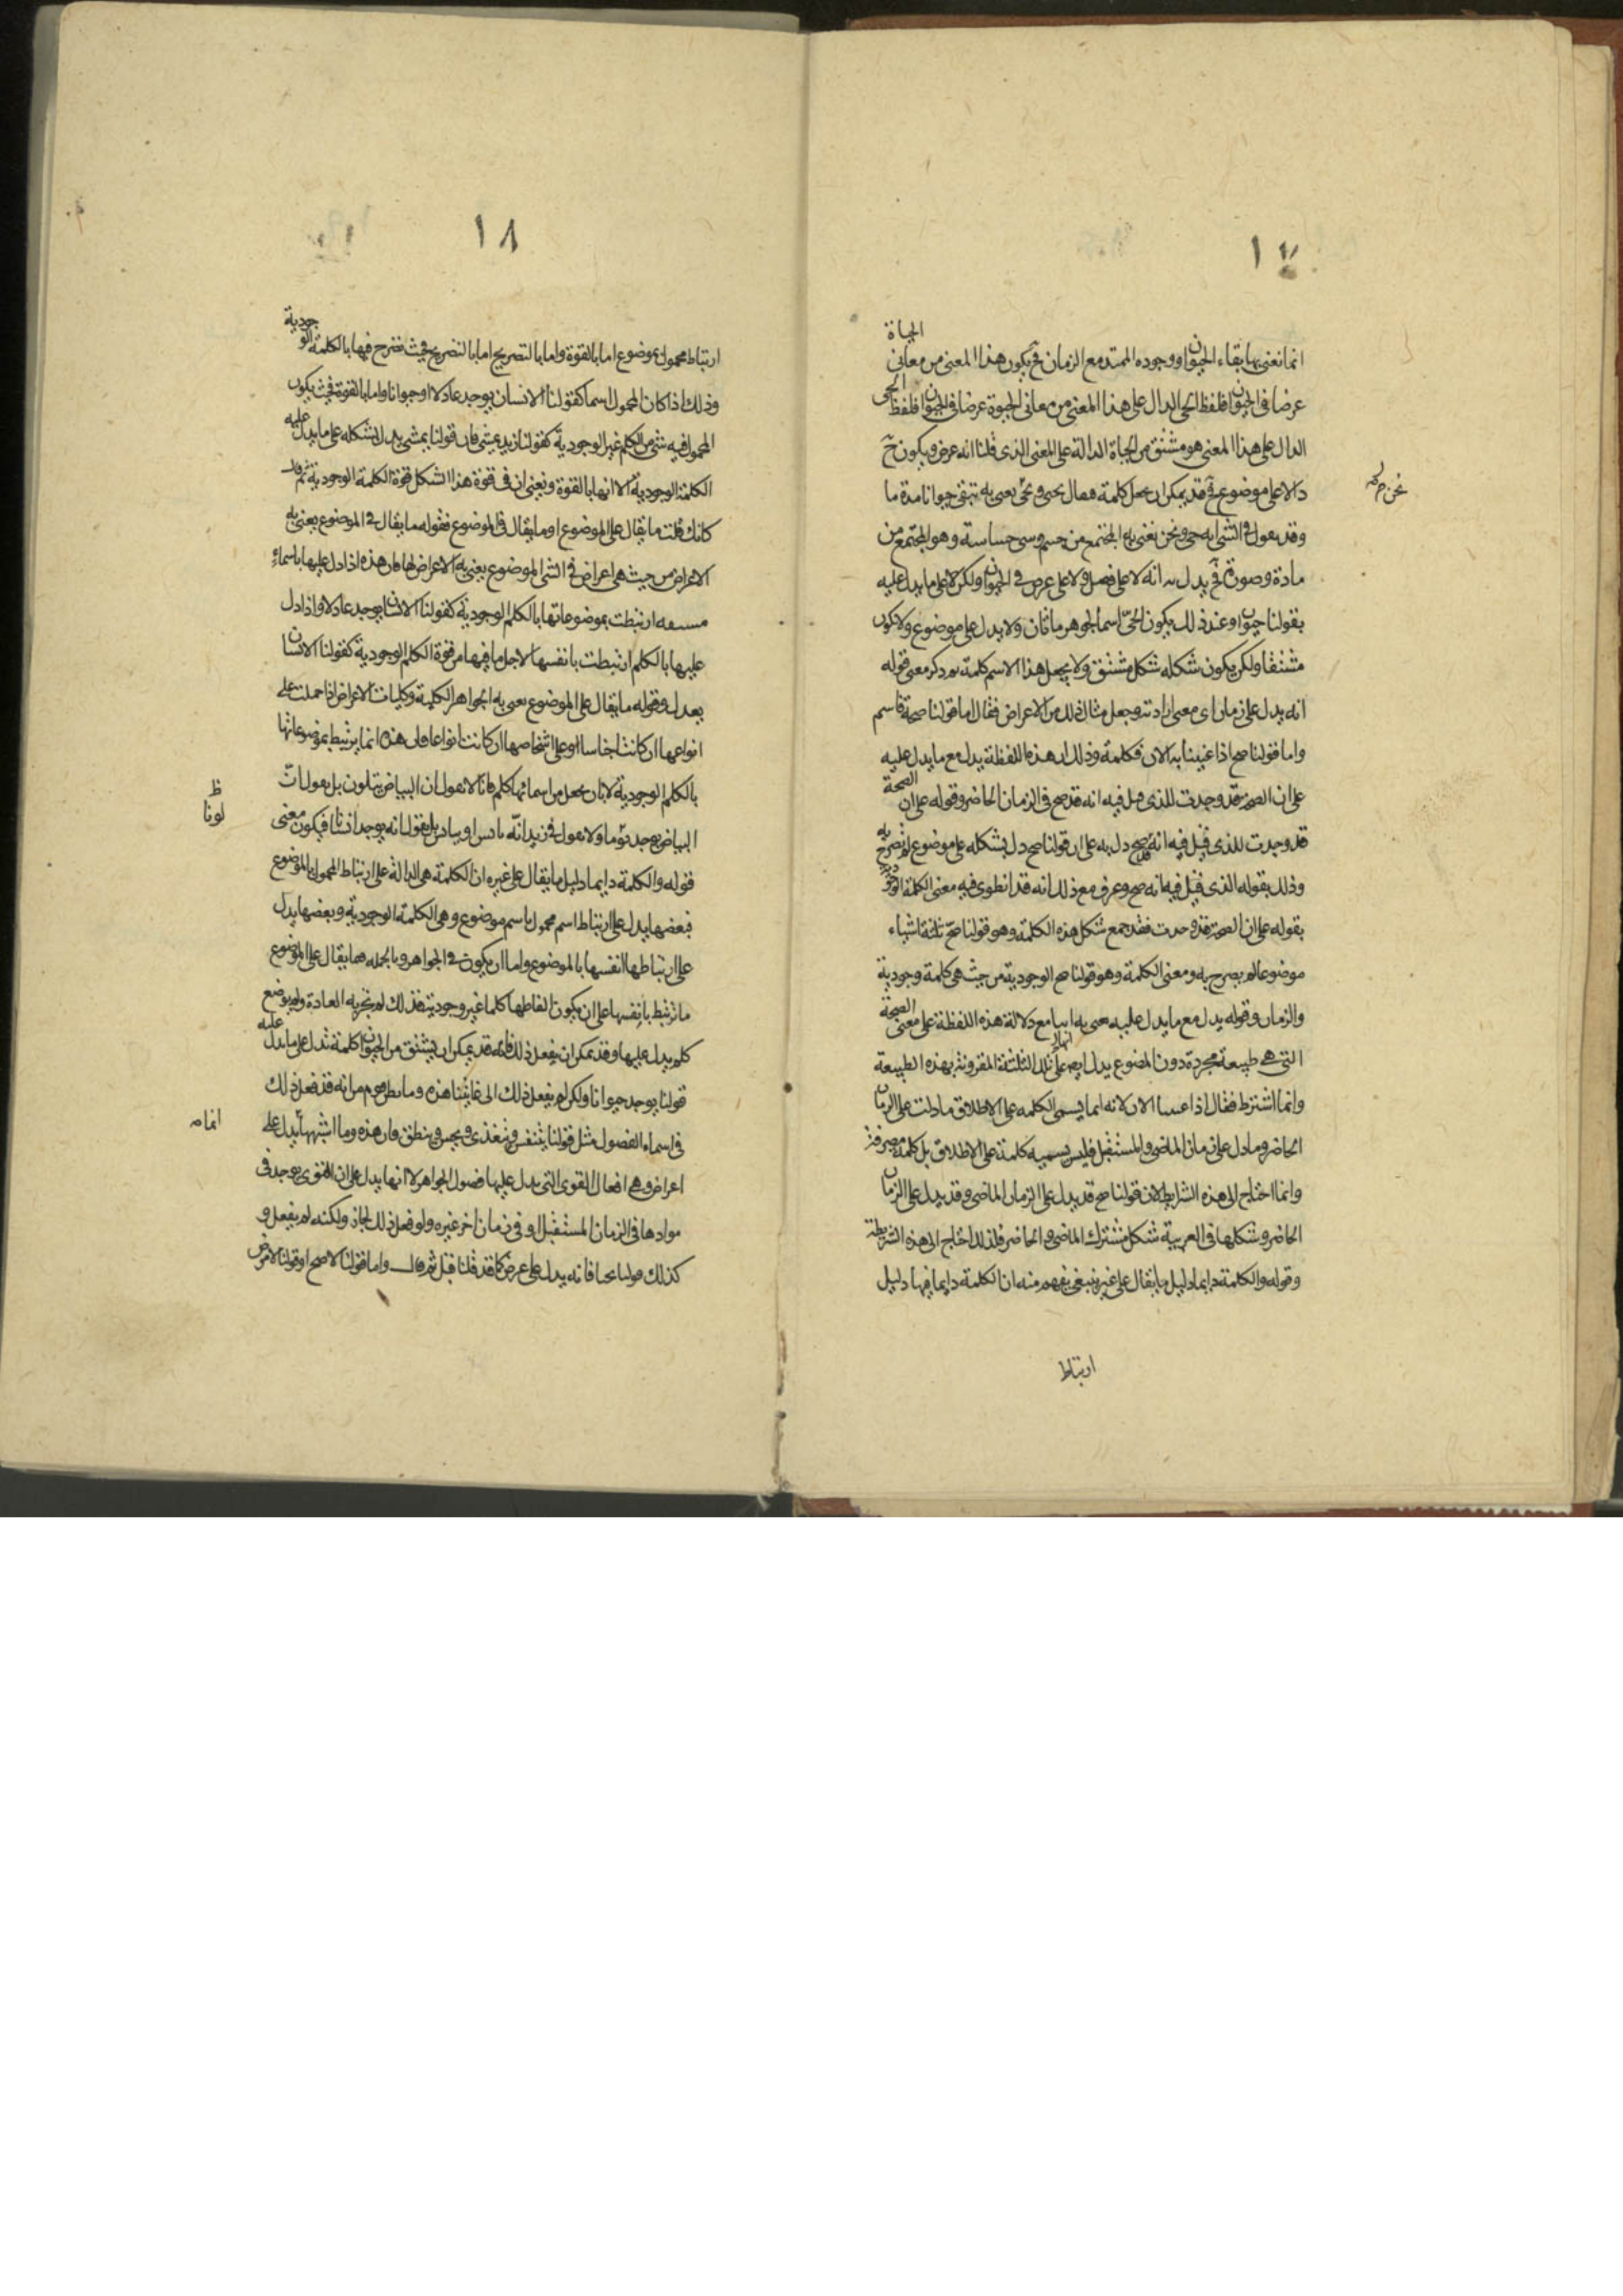 ١٧
الحياة
انما نعنى بها بقاء الحيوان ووجوده الممتد مع الزمان فح يكون هذا المعنى من معانى
عرضا فى الحيوان فلفظ الحى الدال على هذا المعنى من معانى الحيوة عرضا فى الحيوان فلفظ الحى
الدال على هذا المعنى هو مشتق من الحياة الدالة على المعنى الذى قلنا انه عرض ويكون ح
دالا على موضوع فح قد يمكن ان يجعل كلمة فيقال يحيى ونحن نعنى به يبقى حيوانا مدة ما
وقد نقول فى الشى انه حى ونحن نعنى به المجتمع من جسم وشى حساسة وهو المجتمع من
مادة وصورة فح يدل لا على فصل ولا على عرض فى الحيوان ولكن لا على ما يدل عليه
بقولنا حيوان وعند ذلك يكون الحى اسما لجوهر ما ثان ولا يدل على موضوع ولا يكون
مشتقا ولكن يكون شكله شكل مشتق ولا يجعل هذا الاسم كلمة ثم ذكر معنى قوله
انه يدل على زمان اى معنى اراد به وجعل مثال ذلك من الاعراض فقال اما قولنا صحة فاسم
واما قولنا صح اذا عنينا به الان فكلمة وذلك ان هذه اللفظة يدل مع ما يدل عليه
على ان الصحة قد وجدت للذى قيل فيه انه قد صح فى الزمان الحاضر وقوله على ان الصحة
قد وجدت للذى قيل فيه انه صح دل به على ان قولنا صح دل بشكله على موضوع لم يصرح به
وذلك بقوله الذى قيل فيه انه صح وعرف مع ذلك انه قد انطوى فيه معنى الكلمة الوجودية
بقوله على ان الصحة قد وجدت فقد جمع شكل هذه الكلمة وهو قولنا صح ثلثة اشياء
موضوعا لم يصرح به ومعنى الكلمة وهو قولنا صح الوجودية من حيث هى كلمة وجودية
والزمان وقوله يدل مع ما يدل عليه يعنى به انها مع دلالة هذه اللفظة على معنى الصحة
التى هى طبيعة مجردة دون الموضوع يدل ايضا على تلك الثلثة المقرونة بهذه الطبيعة
وانما اشترط فقال اذا عنينا الان لانه انما يسمى الكلمة على الاطلاق ما دلت على الزمان
الحاضر وما دل على زمان الماضى والمستقبل فليس يسميه كلمة على الاطلاق بل كلمة مصرفة
وانما احتاج الى هذه الشرايط لان قولنا صح قد يدل على الزمان الماضى وقد يدل على الزمان
الحاضر وشكلها فى العربية شكل مشترك الماضى والحاضر فلذلك احتاج الى هذه الشريطة
وقوله والكلمة دايما دليل ما يقال على غيره ينبغى يفهم منه ان الكلمة دايما فيها دليل
ارتباط
١٨
ارتباط محمول بموضوع اما بالقوة واما بالتصريح اما بالتصريح فحيث نصرح فيها بالكلمة الوجودية
وذلك اذا كان المحمول اسما كقولنا الانسان يوجد عادلا او حيوانا واما بالقوة فحيث يكون
المحمول فيه شى من الكلم غير الوجودية كقولنا زيد يمشى فان قولنا يمشى يدل بشكله على ما يدل عليه
الكلمة الوجودية الا انها بالقوة ونعنى ان فى قوة هذا الشكل قوة الكلمة الوجودية ثم قال
كانك قلت ما يقال على الموضوع او ما يقال فى الموضوع فقوله ما يقال فى الموضوع يعنى به
الاعراض من حيث هى اعراض فى الشى الموضوع يعنى به الاعراض لها فان هذه اذا دل عليها باسماء
مشتقة ارتبطت بموضوعاتها بالكلم الوجودية كقولنا الانسان يوجد عادلا واذا دل
عليها بالكلم ارتبطت بانفسها لاجل ما فيها من قوة الكلم الوجودية كقولنا الانسان
يعدل وقوله ما يقال على الموضوع يعنى به الجواهر الكلية وكليات الاعراض اذا حملت على
انواعها ان كانت اجناسا او على اشخاصها ان كانت انواعا فان هذه انما يرتبط بموضوعاتها
بالكلم الوجودية لا بان يجعل من اسمائها كلم فانا لا نقول ان البياض يتلون بل نقول ان
ظ
لونا
البياض يوجد لونا ما ولا نقول فى زيد انه بل نقول انه يوجد انسانا فيكون معنى
قوله والكلمة دايما دليل ما يقال على غيره ان الكلمة هى الدالة على ارتباط المحمول بالموضوع
فبعضها يدل على ارتباط اسم محمول باسم موضوع وهى الكلمة الوجودية وبعضها يدل
على ارتباطها انفسها بالموضوع واما ان يكون فى الجواهر وبالجملة فما يقال على الموضوع
ما يرتبط بانفسها على ان يكون الفاظها كلما غير وجودية فذلك لم تجر به العادة ولم يوضع
كلم يدل عليها وقد يمكن ان يفعل ذلك فانه قد يمكن ان يشتق من الحيوان كلمة تدل على ما يدل عليه
قولنا يوجد حيوانا ولكن لم يفعل ذلك الى غايتنا هذه وما يظن قوم من انه قد فعل ذلك
فى اسماء الفصول مثل قولنا يتنفس ويغتذى ويحس وينطق فان هذه وما اشبهها يدل على
اعراض وهى افعال القوى التى يدل عليها فصول الجواهر لا انها يدل على ان القوى يوجد فى
موادها فى الزمان المستقبل او فى زمان اخر غيره ولو فعل ذلك لجاز ولكنه لم يفعل و
كذلك قولنا يحيا فانه يدل على عرض كما قد قلنا قبل ثم قال واما قولنا لا صح او قولنا لا مرض